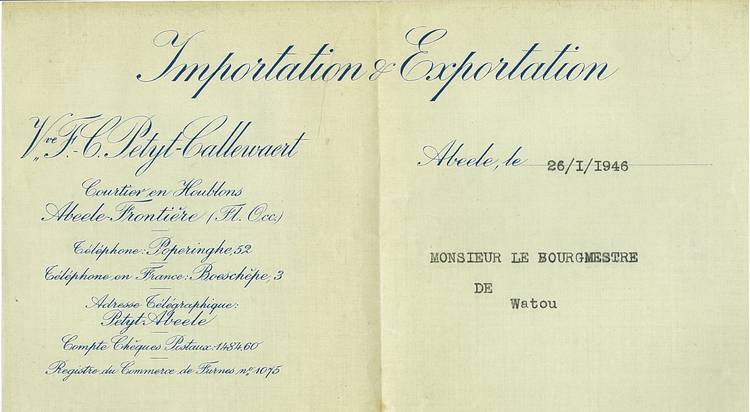 Importation & Exportation
Vve F.-C. Petyt-Callewaert
Courtier en Houblons
Abeele-Frontière (Fl. Occ.)
Téléphone: Poperinghe, 52
Téléphone en France: Boeschèpe, 3
Adresse Télégraphique:
Petyt-Abeele
Compte Chèques Postaux: 1484.60
Registre du Commerce de Furnes nº 1075
Abeele, le 26/I/1946
MONSIEUR LE BOURGMESTRE
DE
Watou